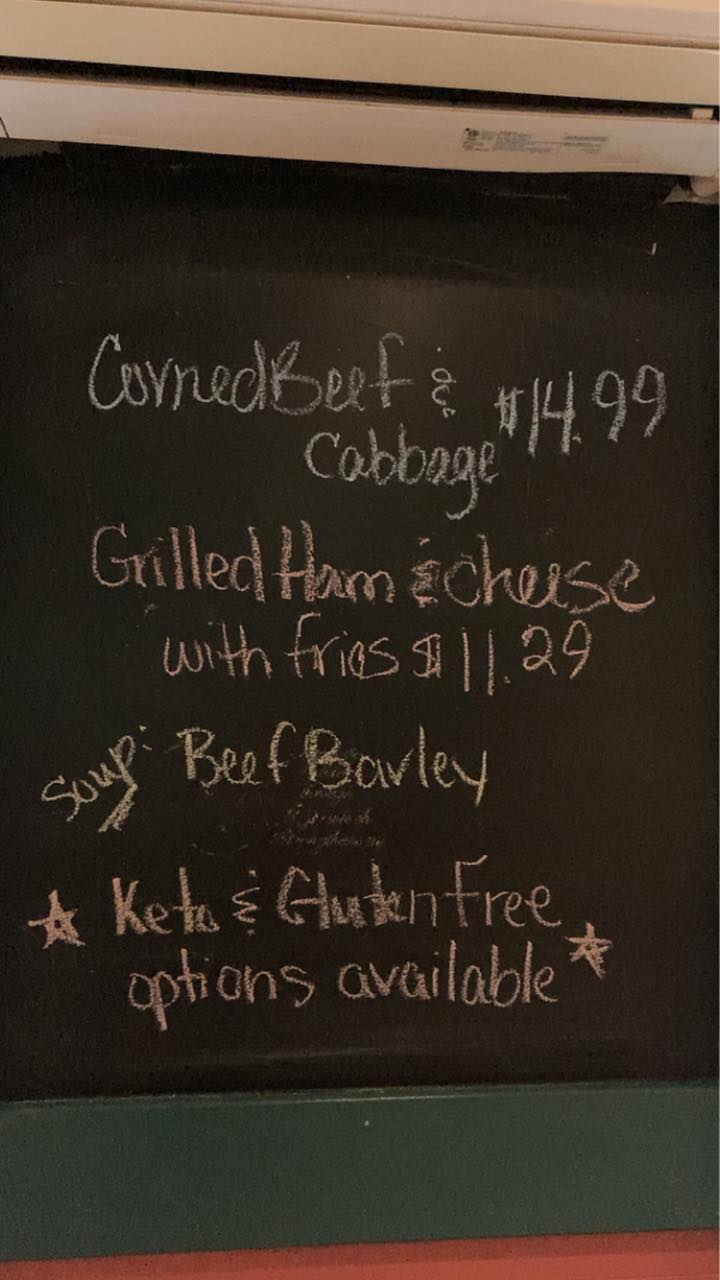 Corned Beef &
Cabbage $14.99
Grilled Ham & cheese
with fries $11.29
Soup: Beef Barley
Keto & Gluten free
options available